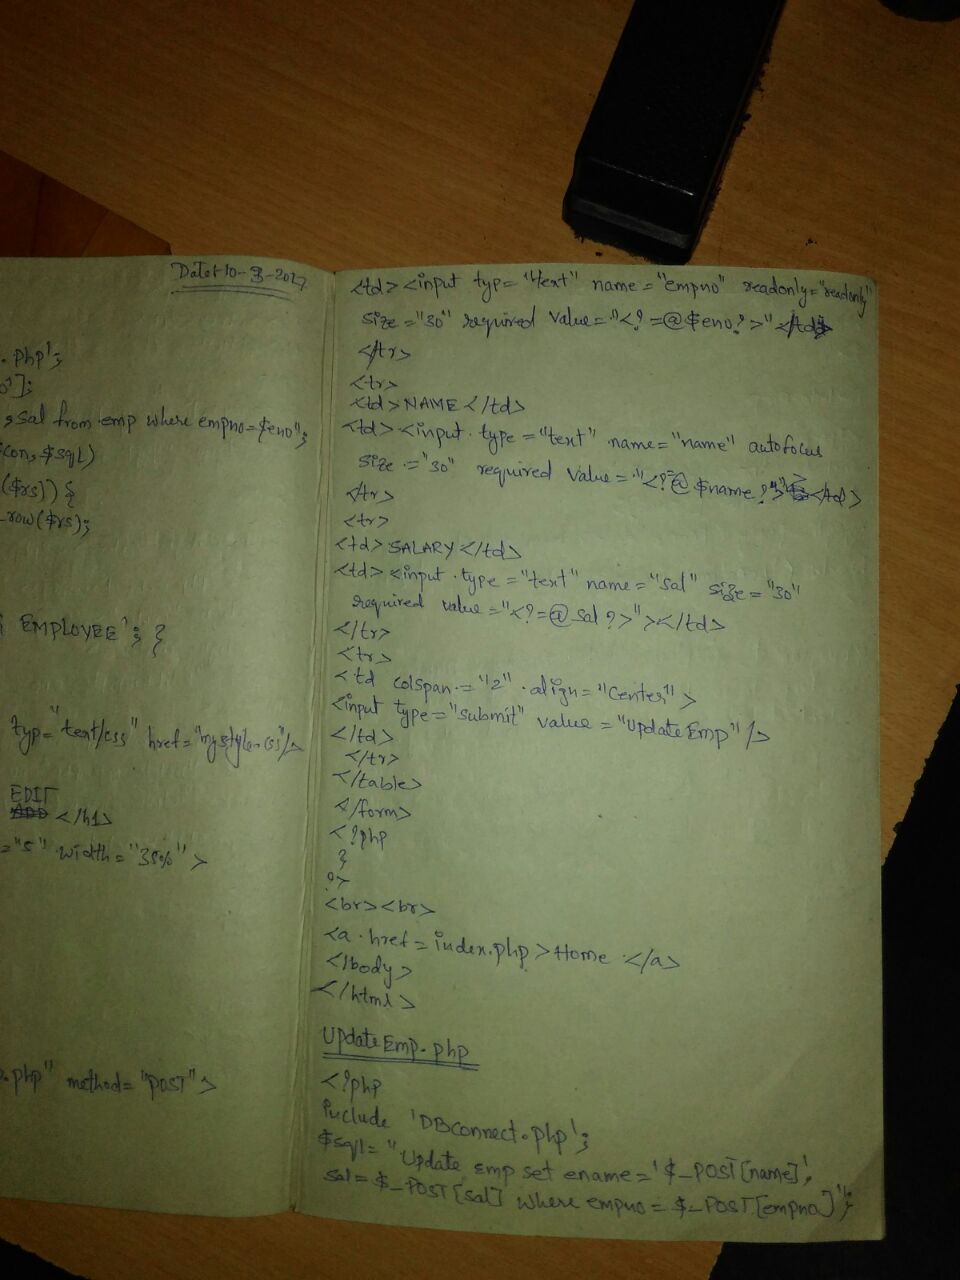 Date:-10-3-2017
.php';
o'];
, sal from emp where empno=$eno";
(con, $sql)
($rs)) {
_row($rs);
EMPLOYEE'; }
typ="text/css" href="mystyle.css"/>
EDIT
</h1>
="5" width="35%">
p.php" method="POST">
<td><input typ="text" name="empno" readonly="readonly"
size="30" required value="<?=@$eno?>"</td>
</tr>
<tr>
<td>NAME</td>
<td><input type="text" name="name" autofocus
size="30" required value="<?=@$name?>"></td>
</tr>
<tr>
<td>SALARY</td>
<td><input type="text" name="sal" size="30"
required value="<?=@sal?>"></td>
</tr>
<tr>
<td colspan="2" align="center">
<input type="submit" value="UpdateEmp"/>
</td>
</tr>
</table>
</form>
<?php
}
?>
<br><br>
<a href=index.php>Home</a>
</body>
</html>
UpdateEmp.php
<?php
include 'DBconnect.php';
$sql="Update emp set ename='$_POST[name]',
sal=$_POST[sal] where empno=$_POST[empno]";